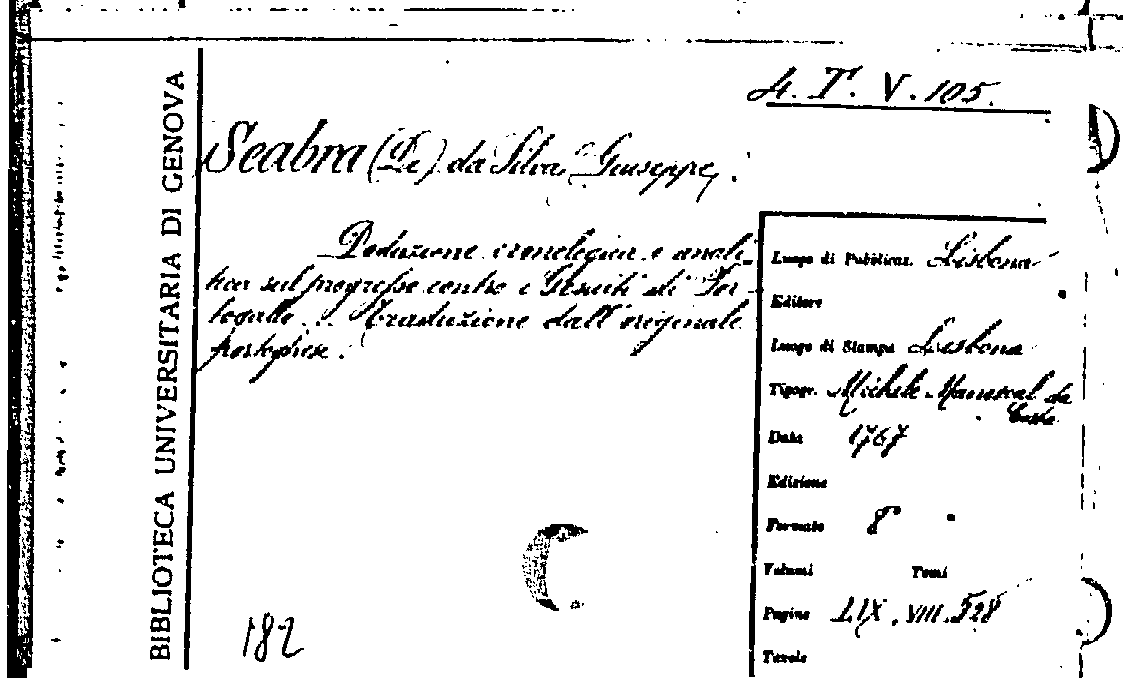 4. T. V. 105.
BIBLIOTECA UNIVERSITARIA DI GENOVA
Seabra (De) da Silva, Giuseppe.
Deduzione cronologica e anali-
tica sul progresso contro i Gesuiti di Por-
togallo... Traduzione dall'originale
portoghese.
Luogo di Pubblicaz. Lisbona
Editore
Luogo di Stampa Lisbona
Tipogr. Michele Manescal da
Costa
Data 1767
Edizione
Formato 8°
Volumi Tomi
Pagine LIX. VIII. 528
Tavole
182